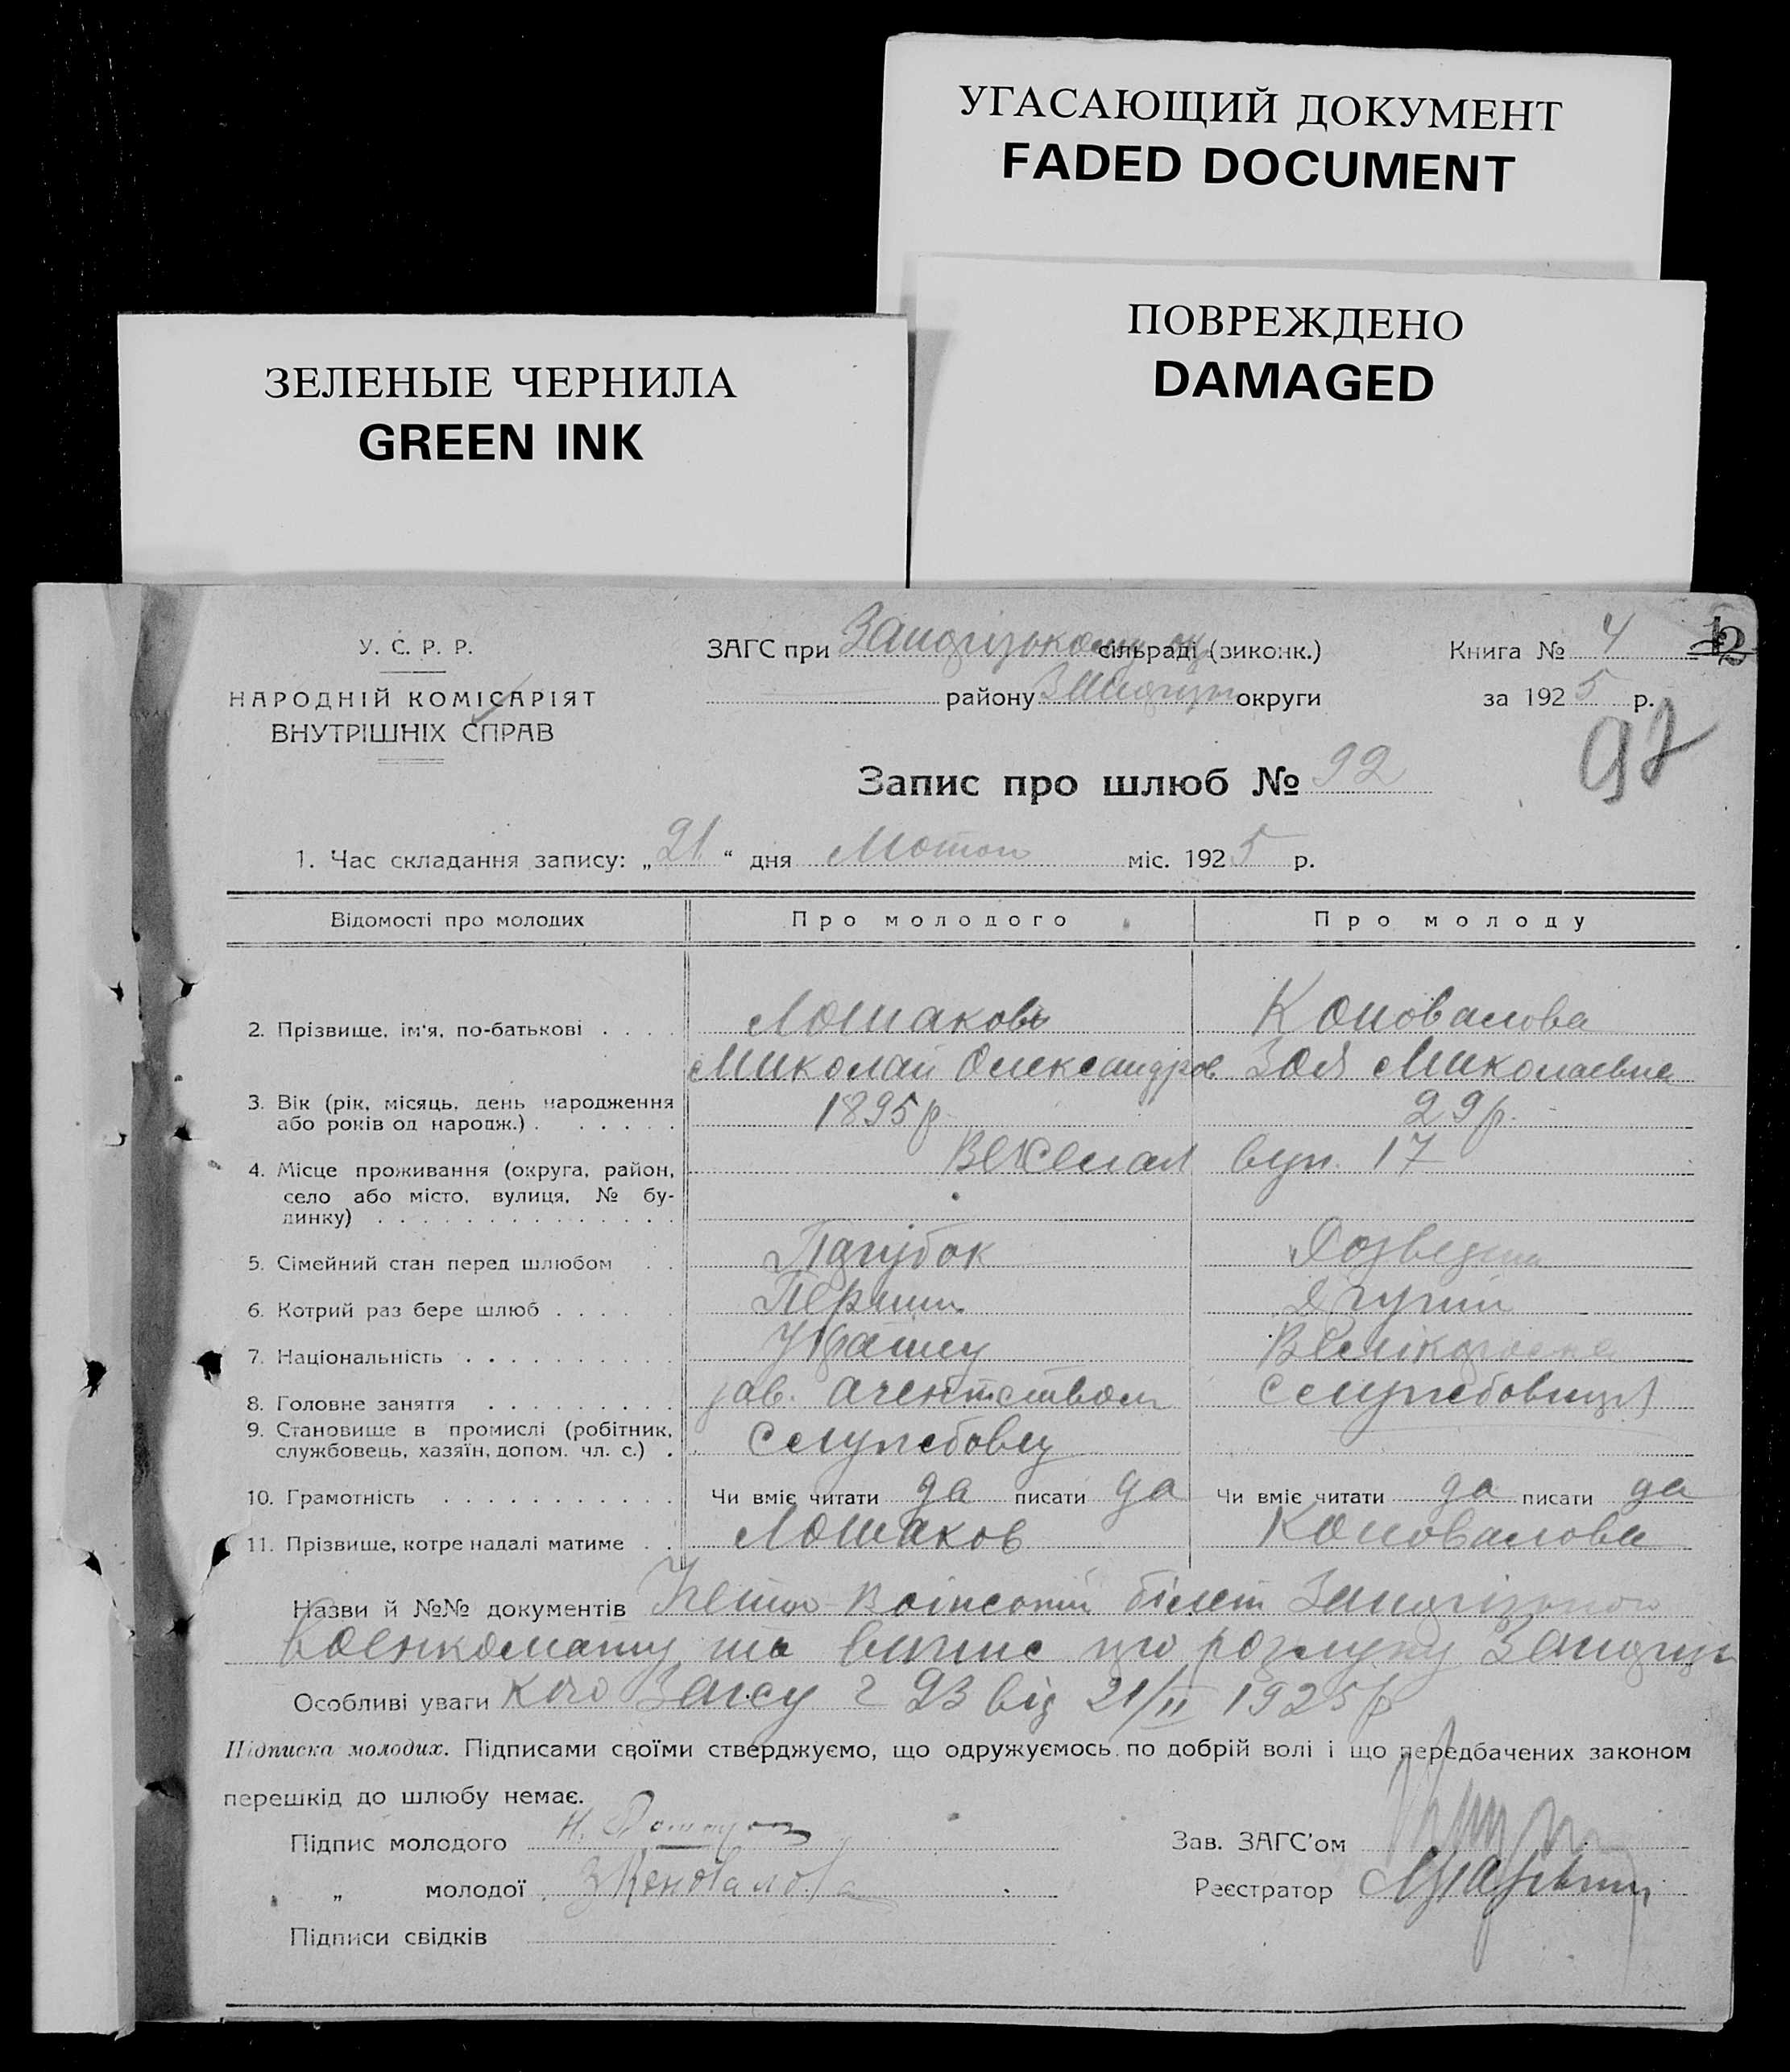 УГАСАЮЩИЙ ДОКУМЕНТ
FADED DOCUMENT
ПОВРЕЖДЕНО
DAMAGED
ЗЕЛЕНЫЕ ЧЕРНИЛА
GREEN INK
У. С. Р. Р.
НАРОДНІЙ КОМІСАРІЯТ
ВНУТРІШНІХ СПРАВ
ЗАГС при сільраді (виконк.)
району округи
Книга № 4
за 1925 р.
Запис про шлюб № 92
1. Час складання запису: „21“ дня міс. 1925 р.
Відомості про молодих Про молодого Про молоду
2. Прізвище, ім'я, по-батькові . . . . Лошаков Коновалова
Миколай Олександров Зоя Миколаевна
3. Вік (рік, місяць, день народження 1895 р 29 р.
або років од народж.) . . . . . .
4. Місце проживання (округа, район, вул. 17
село або місто, вулиця, № бу-
динку) . . . . . . . . . . . . . .
5. Сімейний стан перед шлюбом . . Парубок
6. Котрий раз бере шлюб . . . . . Перший Другий
7. Національність . . . . . . . . . . Українец
8. Головне заняття . . . . . . . . . зав. агентством служебовиця
9. Становище в промислі (робітник, Служебовец
службовець, хазяїн, допом. чл. с.) .
10. Грамотність . . . . . . . . . . . Чи вміє читати да писати да Чи вміє читати да писати да
11. Прізвище, котре надалі матиме . . Лошаков Коновалова
Назви й №№ документів білет
Воєнкомату та випис про розлуку
Особливі уваги кого Загсу 93 від 21/II 1925 р
Підписка молодих. Підписами своїми стверджуємо, що одружуємось по добрій волі і що передбачених законом
перешкід до шлюбу немає.
Підпис молодого
Зав. ЗАГС'ом
„ молодої З Коновалова
Реєстратор
Підписи свідків